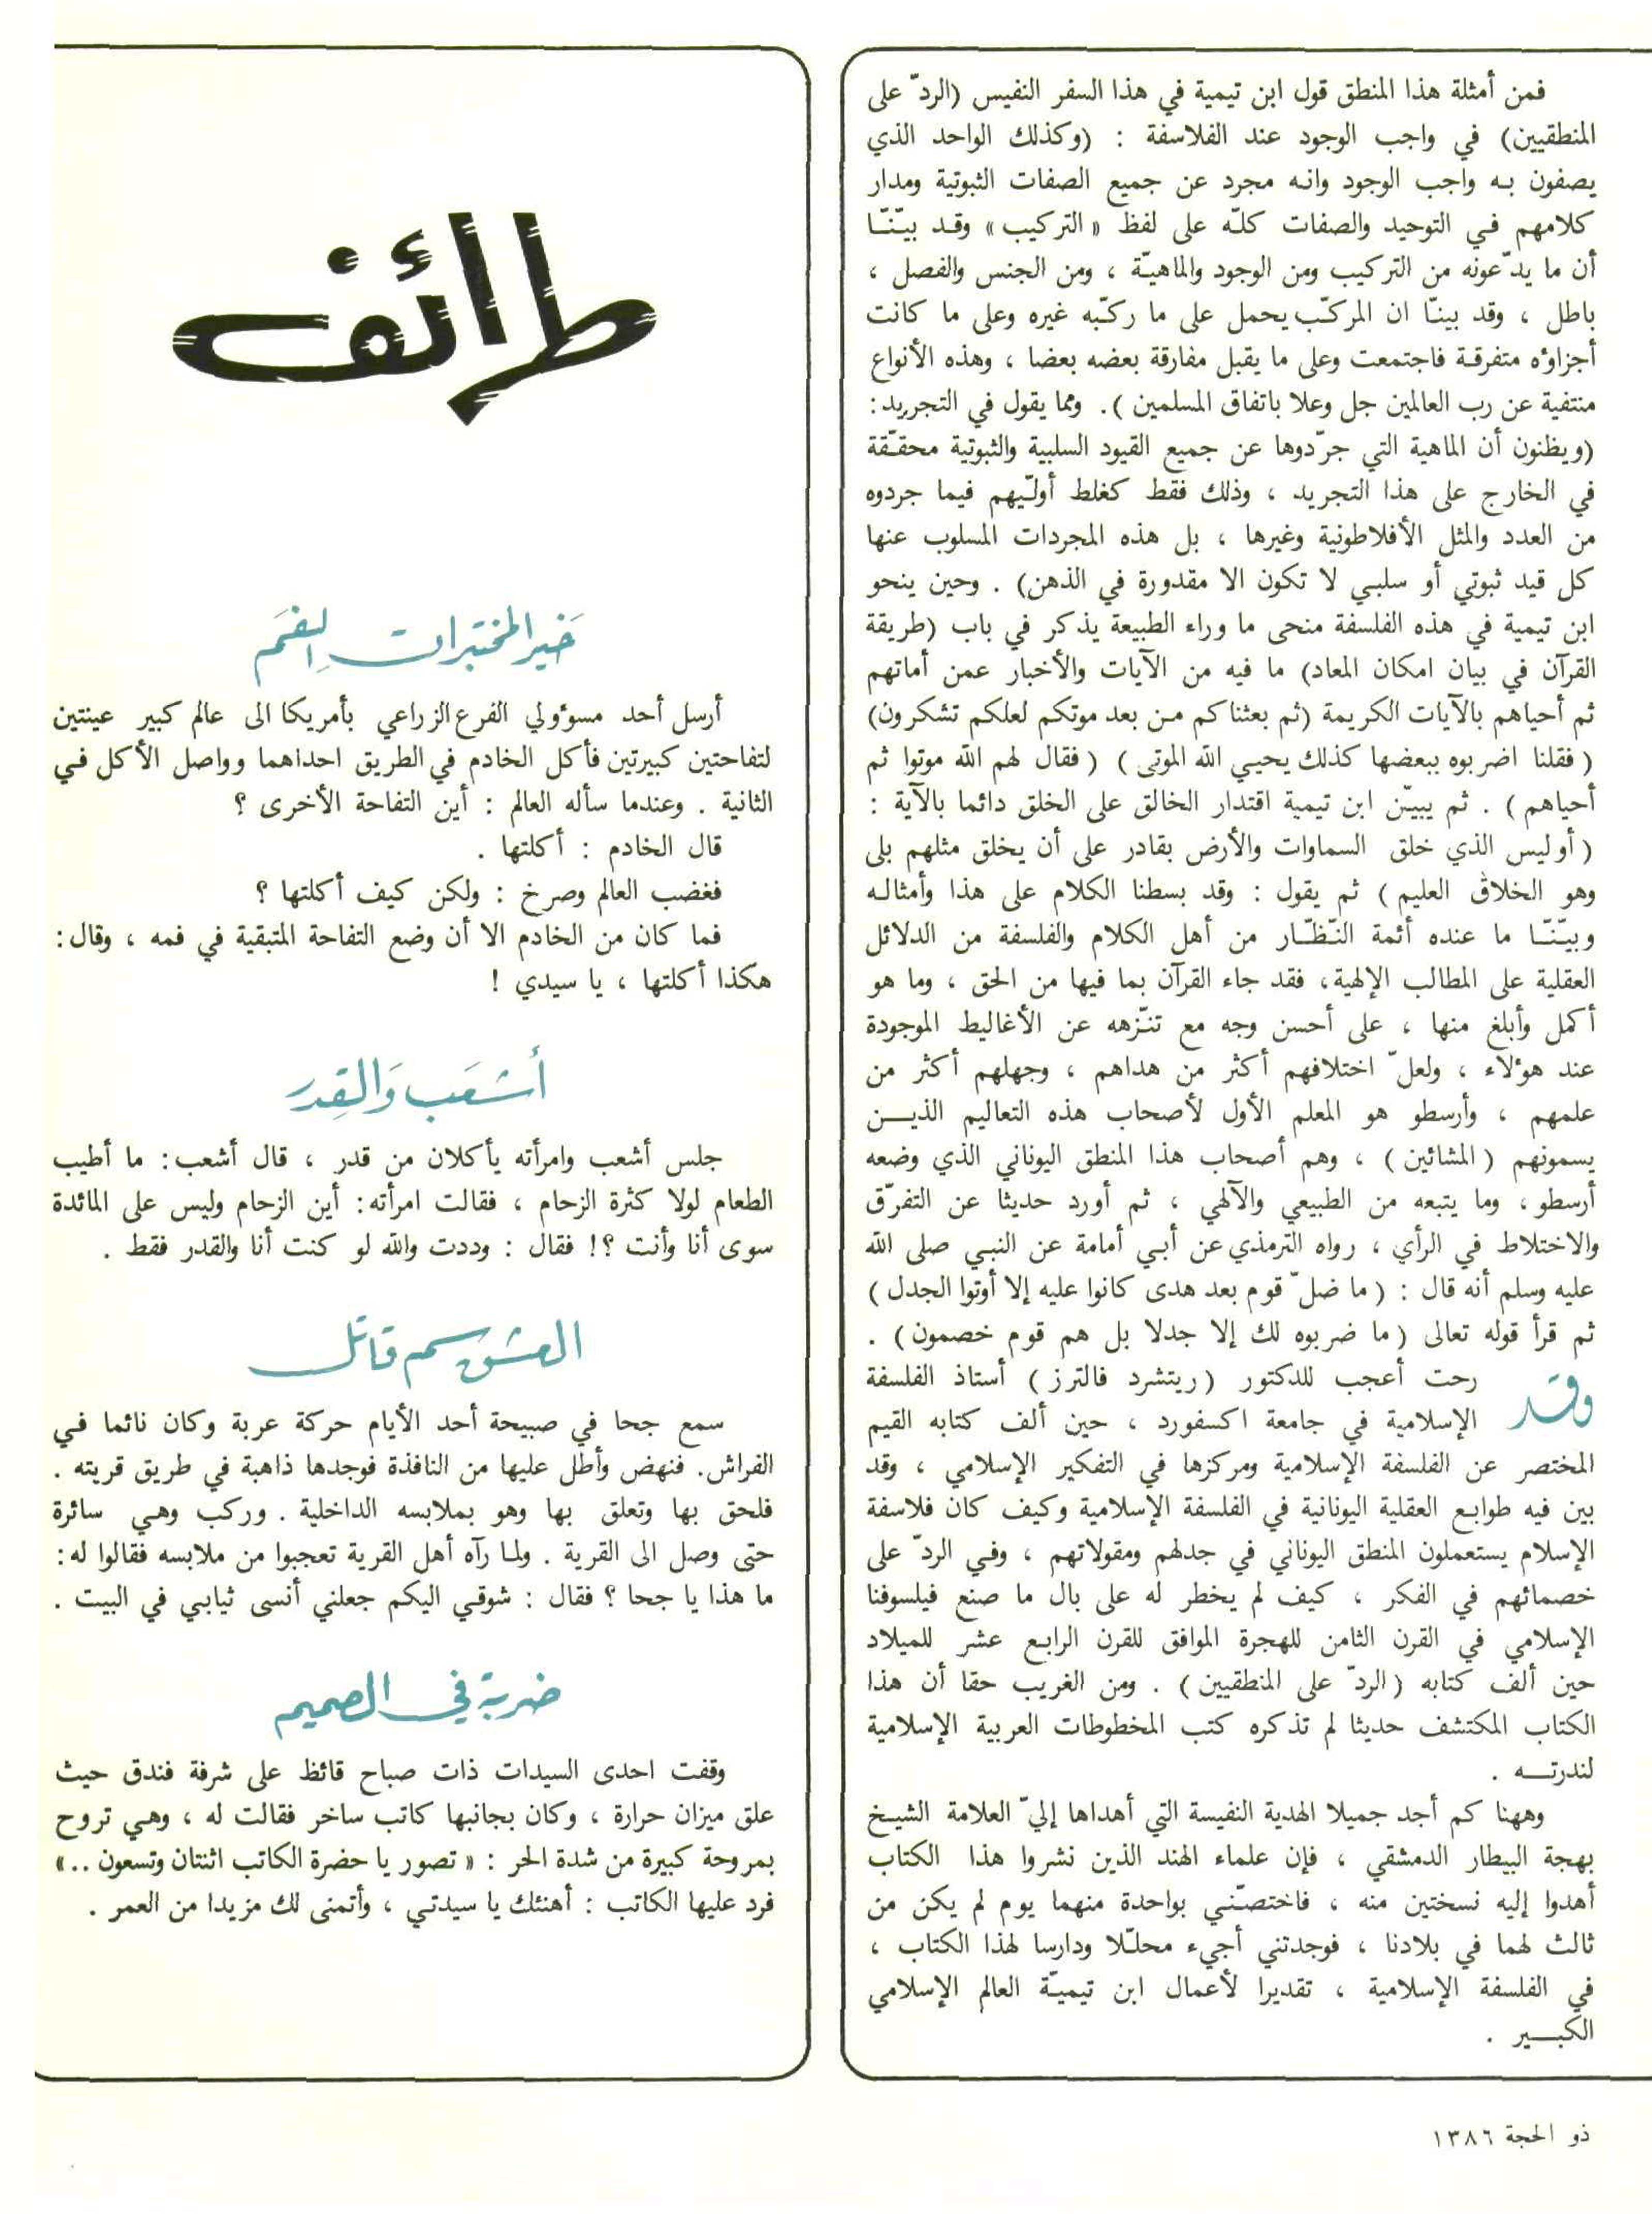 فمن أمثلة هذا المنطق قول ابن تيمية في هذا السفر النفيس (الردّ على
المنطقيين) في واجب الوجود عند الفلاسفة : (وكذلك الواحد الذي
يصفون به واجب الوجود وانه مجرد عن جميع الصفات الثبوتية ومدار
كلامهم في التوحيد والصفات كلّه على لفظ « التركيب » وقد بيّنّا
أن ما يدّعونه من التركيب ومن الوجود والماهيّة ، ومن الجنس والفصل ،
باطل ، وقد بينّا ان المركّب يحمل على ما ركّبه غيره وعلى ما كانت
أجزاؤه متفرقة فاجتمعت وعلى ما يقبل مفارقة بعضه بعضا ، وهذه الأنواع
منتفية عن رب العالمين جل وعلا باتفاق المسلمين ). ومما يقول في التجريد:
(ويظنون أن الماهية التي جرّدوها عن جميع القيود السلبية والثبوتية محقّقة
في الخارج على هذا التجريد ، وذلك فقط كغلط أوليّهم فيما جردوه
من العدد والمثل الأفلاطونية وغيرها ، بل هذه المجردات المسلوب عنها
كل قيد ثبوتي أو سلبي لا تكون الا مقدورة في الذهن) . وحين ينحو
ابن تيمية في هذه الفلسفة منحى ما وراء الطبيعة يذكر في باب (طريقة
القرآن في بيان امكان المعاد) ما فيه من الآيات والأخبار عمن أماتهم
ثم أحياهم بالآيات الكريمة (ثم بعثناكم من بعد موتكم لعلكم تشكرون)
( فقلنا اضربوه ببعضها كذلك يحيي الله الموتى ) ( فقال لهم الله موتوا ثم
أحياهم ) . ثم يبيّن ابن تيمية اقتدار الخالق على الخلق دائما بالآية :
( أوليس الذي خلق السماوات والأرض بقادر على أن يخلق مثلهم بلى
وهو الخلاق العليم ) ثم يقول : وقد بسطنا الكلام على هذا وأمثاله
وبيّنّا ما عنده أئمة النّظّار من أهل الكلام والفلسفة من الدلائل
العقلية على المطالب الإلهية، فقد جاء القرآن بما فيها من الحق ، وما هو
أكمل وأبلغ منها ، على أحسن وجه مع تنزّهه عن الأغاليط الموجودة
عند هؤلاء ، ولعلّ اختلافهم أكثر من هداهم ، وجهلهم أكثر من
علمهم ، وأرسطو هو المعلم الأول لأصحاب هذه التعاليم الذيـــن
يسمونهم ( المشائين ) ، وهم أصحاب هذا المنطق اليوناني الذي وضعه
أرسطو ، وما يتبعه من الطبيعي والآلهي ، ثم أورد حديثا عن التفرّق
والاختلاط في الرأي ، رواه الترمذي عن أبي أمامة عن النبي صلى الله
عليه وسلم أنه قال : ( ما ضلّ قوم بعد هدى كانوا عليه إلا أوتوا الجدل )
ثم قرأ قوله تعالى ( ما ضربوه لك إلا جدلا بل هم قوم خصمون ) .
وقد رحت أعجب للدكتور ( ريتشرد فالترز ) أستاذ الفلسفة
الإسلامية في جامعة اكسفورد ، حين ألف كتابه القيم
المختصر عن الفلسفة الإسلامية ومركزها في التفكير الإسلامي ، وقد
بين فيه طوابع العقلية اليونانية في الفلسفة الإسلامية وكيف كان فلاسفة
الإسلام يستعملون المنطق اليوناني في جدلهم ومقولاتهم ، وفي الردّ على
خصمائهم في الفكر ، كيف لم يخطر له على بال ما صنع فيلسوفنا
الإسلامي في القرن الثامن للهجرة الموافق للقرن الرابع عشر للميلاد
حين ألف كتابه ( الردّ على المنطقيين ) . ومن الغريب حقا أن هذا
الكتاب المكتشف حديثا لم تذكره كتب المخطوطات العربية الإسلامية
لندرتـــه .
وههنا كم أجد جميلا الهدية النفيسة التي أهداها إليّ العلامة الشيخ
بهجة البيطار الدمشقي ، فإن علماء الهند الذين نشروا هذا الكتاب
أهدوا إليه نسختين منه ، فاختصّني بواحدة منهما يوم لم يكن من
ثالث لهما في بلادنا ، فوجدتني أجيء محلّلا ودارسا لهذا الكتاب ،
في الفلسفة الإسلامية ، تقديرا لأعمال ابن تيميّة العالم الإسلامي
الكبـــير .
طرائف
خير المختبرات الفم
أرسل أحد مسؤولي الفرع الزراعي بأمريكا الى عالم كبير عينتين
لتفاحتين كبيرتين فأكل الخادم في الطريق احداهما وواصل الأكل في
الثانية . وعندما سأله العالم : أين التفاحة الأخرى ؟
قال الخادم : أكلتها .
فغضب العالم وصرخ : ولكن كيف أكلتها ؟
فما كان من الخادم الا أن وضع التفاحة المتبقية في فمه ، وقال:
هكذا أكلتها ، يا سيدي !
أشعب والقدر
جلس أشعب وامرأته يأكلان من قدر ، قال أشعب: ما أطيب
الطعام لولا كثرة الزحام ، فقالت امرأته: أين الزحام وليس على المائدة
سوى أنا وأنت ؟! فقال : وددت والله لو كنت أنا والقدر فقط .
العشق سم قاتل
سمع جحا في صبيحة أحد الأيام حركة عربة وكان نائما في
الفراش. فنهض وأطل عليها من النافذة فوجدها ذاهبة في طريق قريته .
فلحق بها وتعلق بها وهو بملابسه الداخلية . وركب وهي سائرة
حتى وصل الى القرية . ولما رآه أهل القرية تعجبوا من ملابسه فقالوا له:
ما هذا يا جحا ؟ فقال : شوقي اليكم جعلني أنسى ثيابي في البيت .
ضربة في الصميم
وقفت احدى السيدات ذات صباح قائظ على شرفة فندق حيث
علق ميزان حرارة ، وكان بجانبها كاتب ساخر فقالت له ، وهي تروح
بمروحة كبيرة من شدة الحر : « تصور يا حضرة الكاتب اثنتان وتسعون ..»
فرد عليها الكاتب : أهنئك يا سيدتي ، وأتمنى لك مزيدا من العمر .
ذو الحجة ١٣٨٦